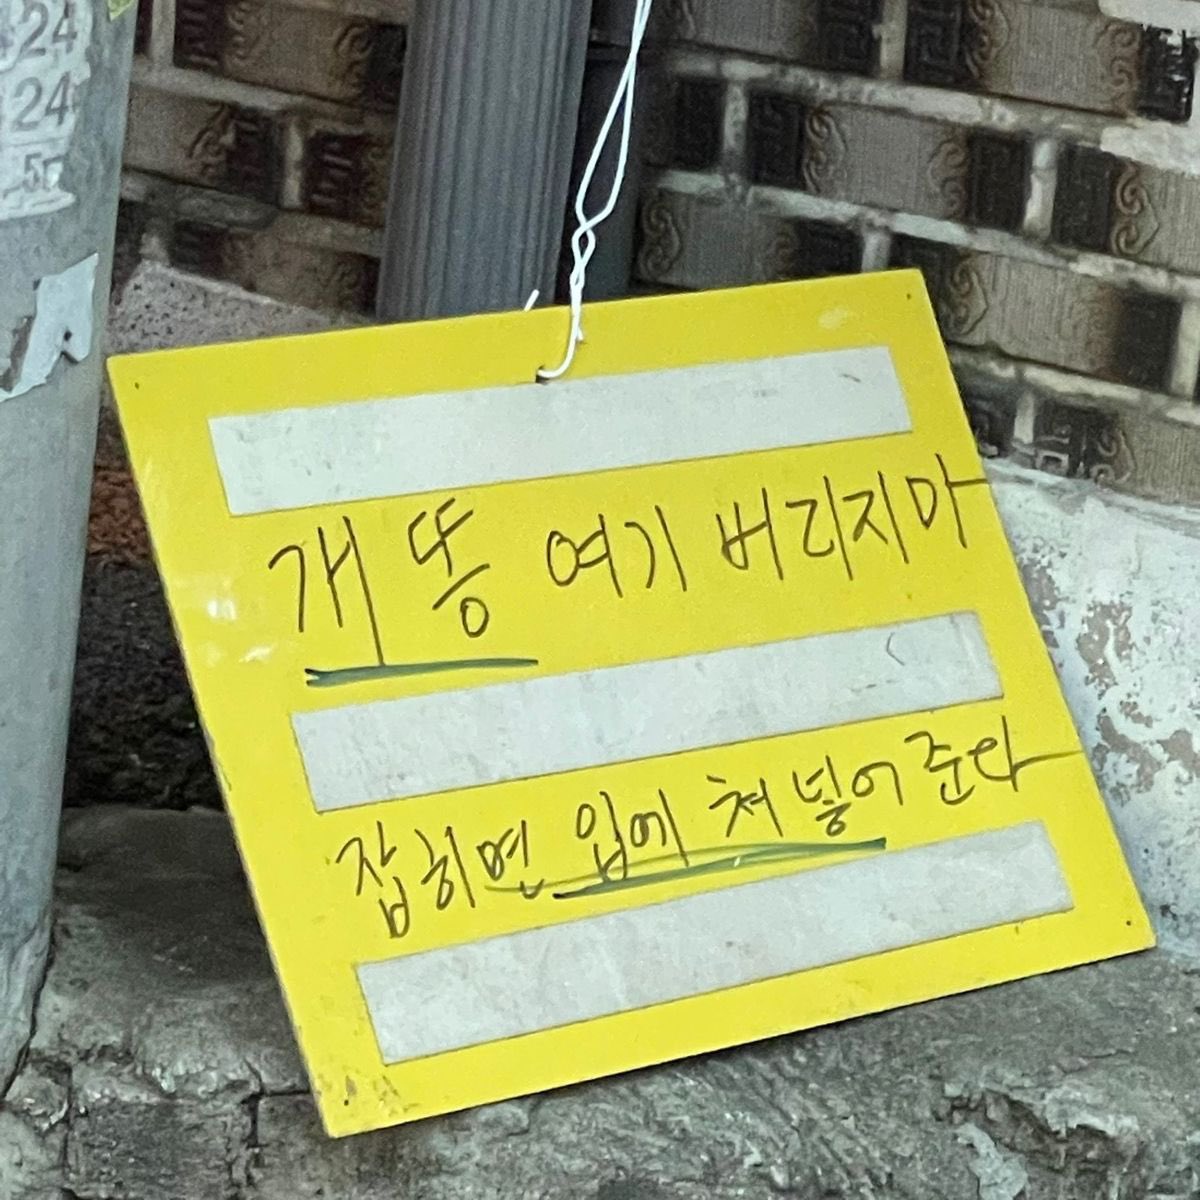 24
24
5
개똥 여기 버리지마
잡히면 입에 쳐 넣어 준다